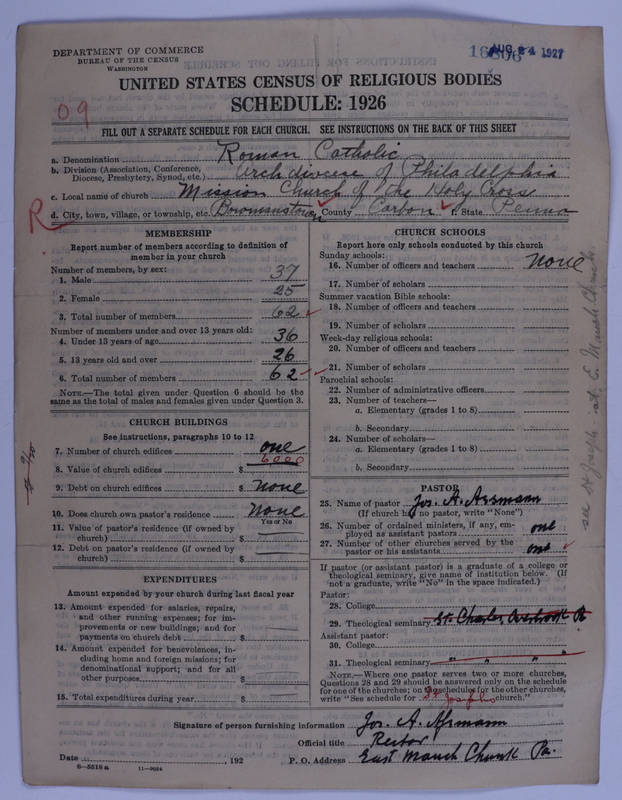 DEPARTMENT OF COMMERCE
BUREAU OF THE CENSUS
WASHINGTON
AUG 24 1927
UNITED STATES CENSUS OF RELIGIOUS BODIES
SCHEDULE: 1926
09
FILL OUT A SEPARATE SCHEDULE FOR EACH CHURCH. SEE INSTRUCTIONS ON THE BACK OF THIS SHEET
a. Denomination Roman Catholic
b. Division (Association, Conference, Diocese, Presbytery, Synod, etc.) Archdiocese of Philadelphia
c. Local name of church Mission Church of the Holy Cross
R d. City, town, village, or township, etc. Bowmanstown e. County Carbon f. State Penna
MEMBERSHIP
Report number of members according to definition of
member in your church
Number of members, by sex:
1. Male 37
2. Female 25
3. Total number of members 62
Number of members under and over 13 years old:
4. Under 13 years of age 36
5. 13 years old and over 26
6. Total number of members 62
NOTE.—The total given under Question 6 should be
the same as the total of males and females given under Question 3.
CHURCH BUILDINGS
See instructions, paragraphs 10 to 12
7. Number of church edifices one
8. Value of church edifices $ 6000
9. Debt on church edifices $ None
10. Does church own pastor's residence? None
Yes or No
11. Value of pastor's residence (if owned by
church) $
12. Debt on pastor's residence (if owned by
church) $
EXPENDITURES
Amount expended by your church during last fiscal year
13. Amount expended for salaries, repairs,
and other running expenses; for im-
provements or new buildings; and for
payments on church debt $
14. Amount expended for benevolences, in-
cluding home and foreign missions; for
denominational support; and for all
other purposes $
15. Total expenditures during year $
CHURCH SCHOOLS
Report here only schools conducted by this church
Sunday schools:
16. Number of officers and teachers None
17. Number of scholars
Summer vacation Bible schools:
18. Number of officers and teachers
19. Number of scholars
Week-day religious schools:
20. Number of officers and teachers
21. Number of scholars
Parochial schools:
22. Number of administrative officers
23. Number of teachers—
a. Elementary (grades 1 to 8)
b. Secondary
24. Number of scholars—
a. Elementary (grades 1 to 8)
b. Secondary
see St Joseph - at E. Mauch Chunk.
PASTOR
25. Name of pastor Jos. A. Assmann
(If church has no pastor, write "None")
26. Number of ordained ministers, if any, em-
ployed as assistant pastors one
27. Number of other churches served by the
pastor or his assistants one
If pastor (or assistant pastor) is a graduate of a college or
theological seminary, give name of institution below. (If
not a graduate, write "No" in the space indicated.)
Pastor:
28. College
29. Theological seminary St. Charles, Overbrook Pa
Assistant pastor:
30. College
31. Theological seminary " " "
NOTE.—Where one pastor serves two or more churches,
Questions 28 and 29 should be answered only on the schedule
for one of the churches; on the schedules for the other churches,
write "See schedule for St Josephs church."
Signature of person furnishing information Jos. A. Assmann
Official title Rector
Date , 192 P. O. Address East Mauch Chunk Pa.
8—5518a 11—9024